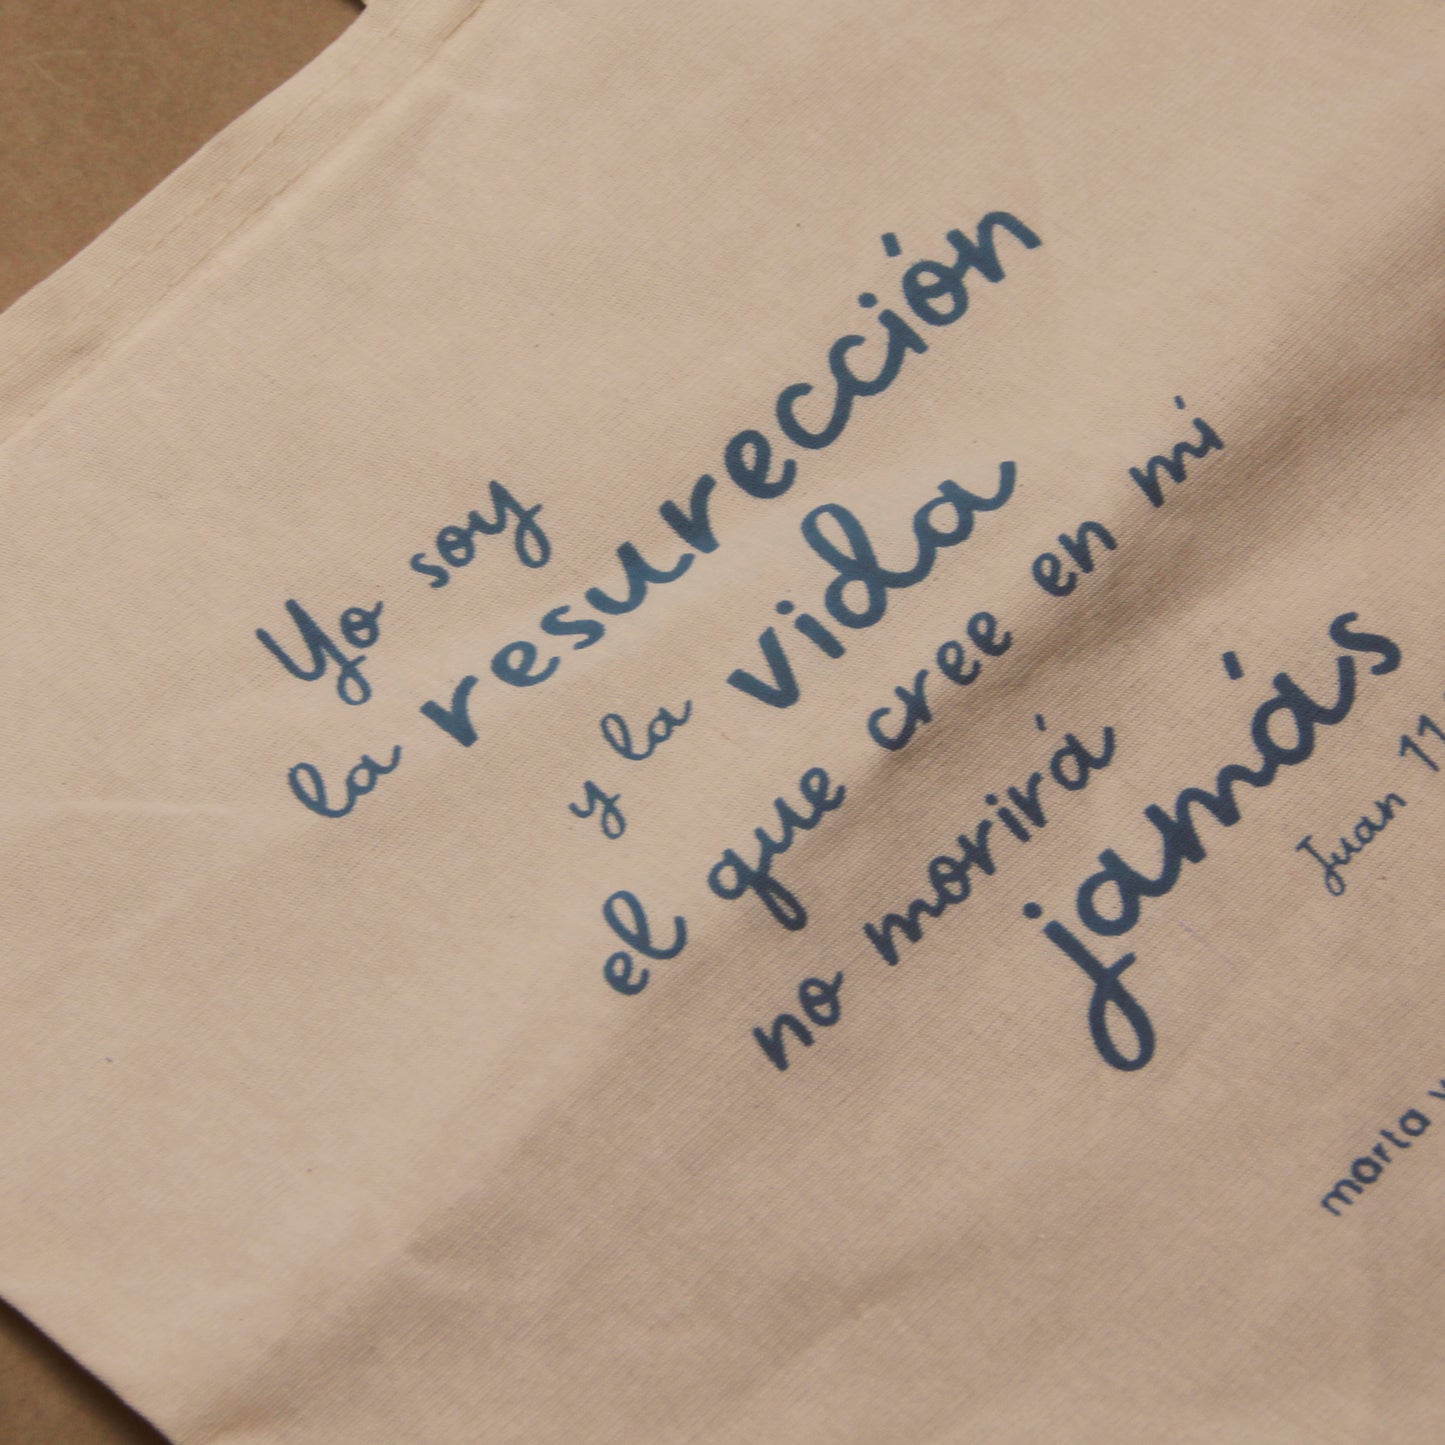 Yo soy
la resurección
y la vida
el que cree en mí
no morirá
jamás
Juan 11
marta